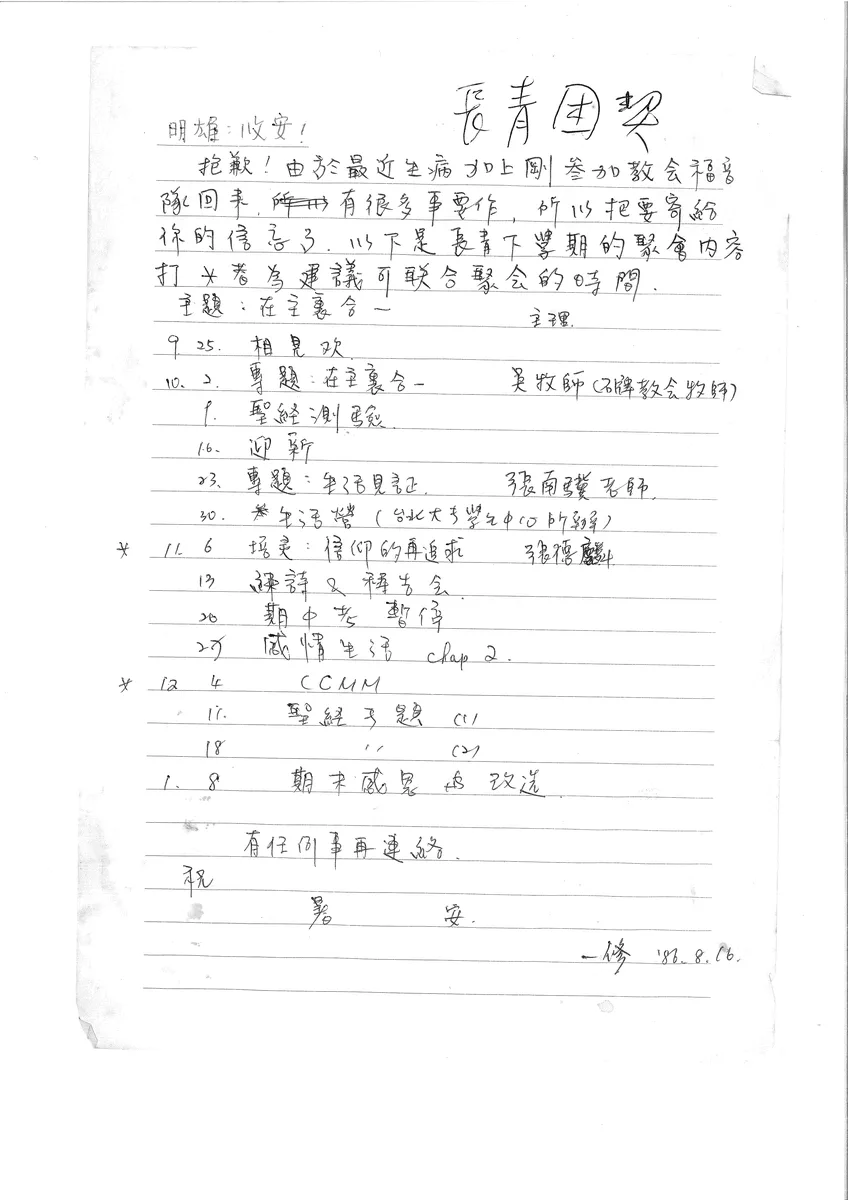 長青团契
明雄：收安！
抱歉！由於最近生病加上剛參加教会福音
隊回來，有很多事要作，所以把要寄給
你的信忘了．以下是長青下學期的聚會內容
打*者為建議可联合聚会的時間．
主題：在主裏合一
主理．
9 25. 相見欢
10. 2. 專題：在主裏合一 吳牧師（石牌教会牧師）
9. 聖経測驗
16. 迎新
23. 專題：生活見証． 張南驥老師．
30. *生活營（台北大專學生中心所辦）
* 11. 6 培灵：信仰的再追求 張德麟
13 練詩＆禱告会．
20 期中考 暫停
27 感情生活 chap 2.
* 12 4 CCMM
11. 聖経专題 (1)
18 〃 (2)
1. 8 期末感恩 改选．
有任何事再連絡．
祝
暑 安．
一修 '86. 8. 16.